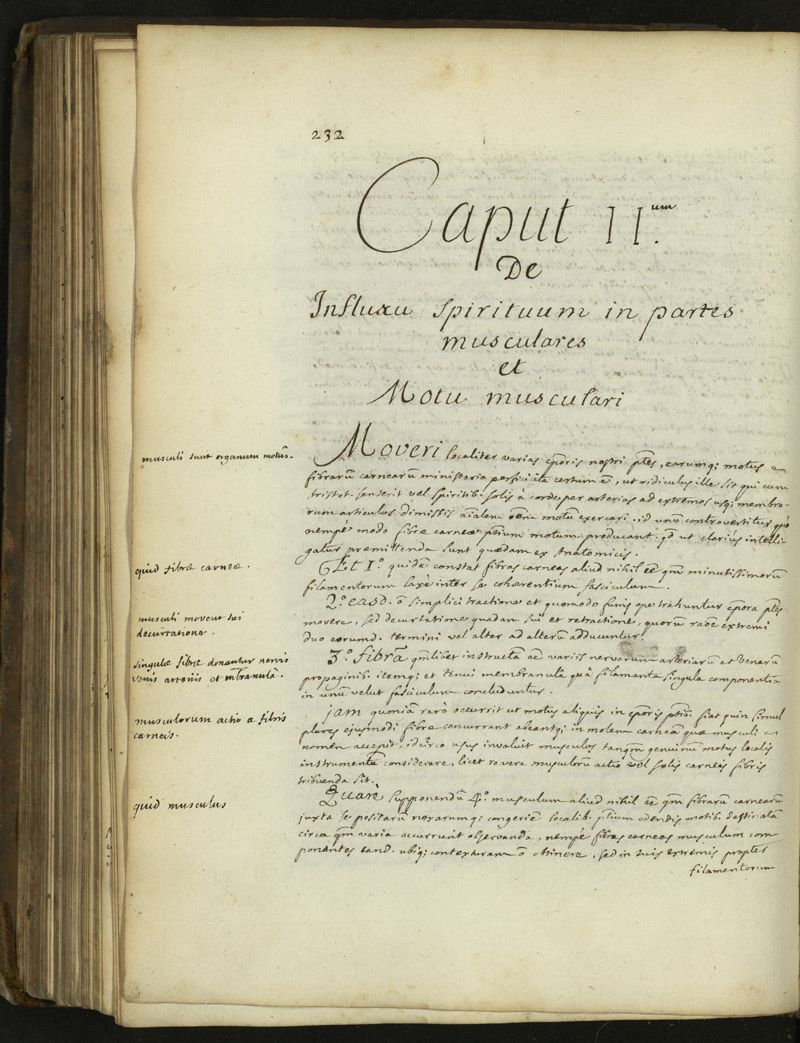 232
Caput II.um
De
Influxu spirituum in partes
musculares
et
Motu musculari
musculi sunt organum motûs.
Moveri localiter varias cporis nostri ptes, earumq; motus
fibrarū carnearū ministerio perfici ita certum ē, ut ridiculus ille sit qui cum
senserit vel spiritib. solis à corde per arterias ad extremos usq; membro-
rum articulos dimissis aīalem motū exerceri. id unū controvertitur
nempè modo fibræ carneæ ptium motum producant. qd ut clariùs intelli-
gatur præmittenda sunt quædam ex Anatomicis.
quid fibræ carneæ.
Et 1.º quidē constat fibras carneas aliud nihil eē qm minutissimorū
filamentorum laxè inter se cohærentium fasciculum.
musculi movent sui
decurtatione.
2.º easd. ō simplici tractione et quomodo funis ope trahuntur cpora ptes
movere, sed decurtatione quadam sui et retractione, quorū raōe extremi
duo eorumd. termini vel alter ad alterū adducuntur.
singulæ fibræ donantur nervis
venis arteriis et mbranulâ.
3.º fibrā qmlibet instructā eē variis nervorum arteriarū et venarū
propaginib. itemq; et tenui membranulâ quâ filamenta singula componentia
in unū velut fasciculum concluduntur.
musculorum actio a fibris
carneis.
jam quoniā rarò occurrit ut motus aliquis in cporis ptib. fiat quin simul
plures ejusmodi fibræ concurrant abeantq; in molem carneā quæ musculi
nomen accepit, idcirco usus invaluit musculos tanqm genuinū motus localis
instrumentū considerare, licet revera musculorū actio vel solis carneis fibris
tribuenda sit.
quid musculus
Quarè supponendū 4.º musculum aliud nihil eē qm fibrarū carnearū
juxta se positarū congeriē localib. ptium edendis motib. destinatā
circa qm varia occurrunt observanda, nempè fibras carneas musculum com
ponentes eand. ubiq; contexturam ō obtinere, sed in suis extremis propter
filamentorum